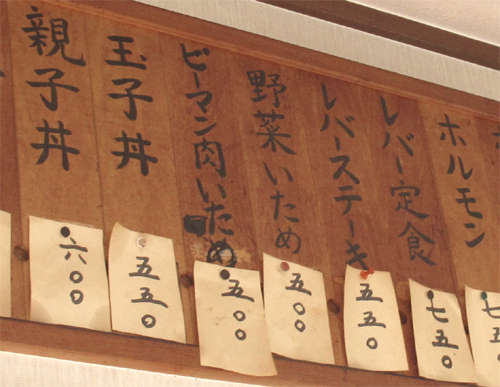 親子丼
六〇〇
玉子丼
五五〇
ピーマン肉いため
五〇〇
野菜いため
五〇〇
レバーステーキ
五五〇
レバー定食
七五〇
ホルモン
七五